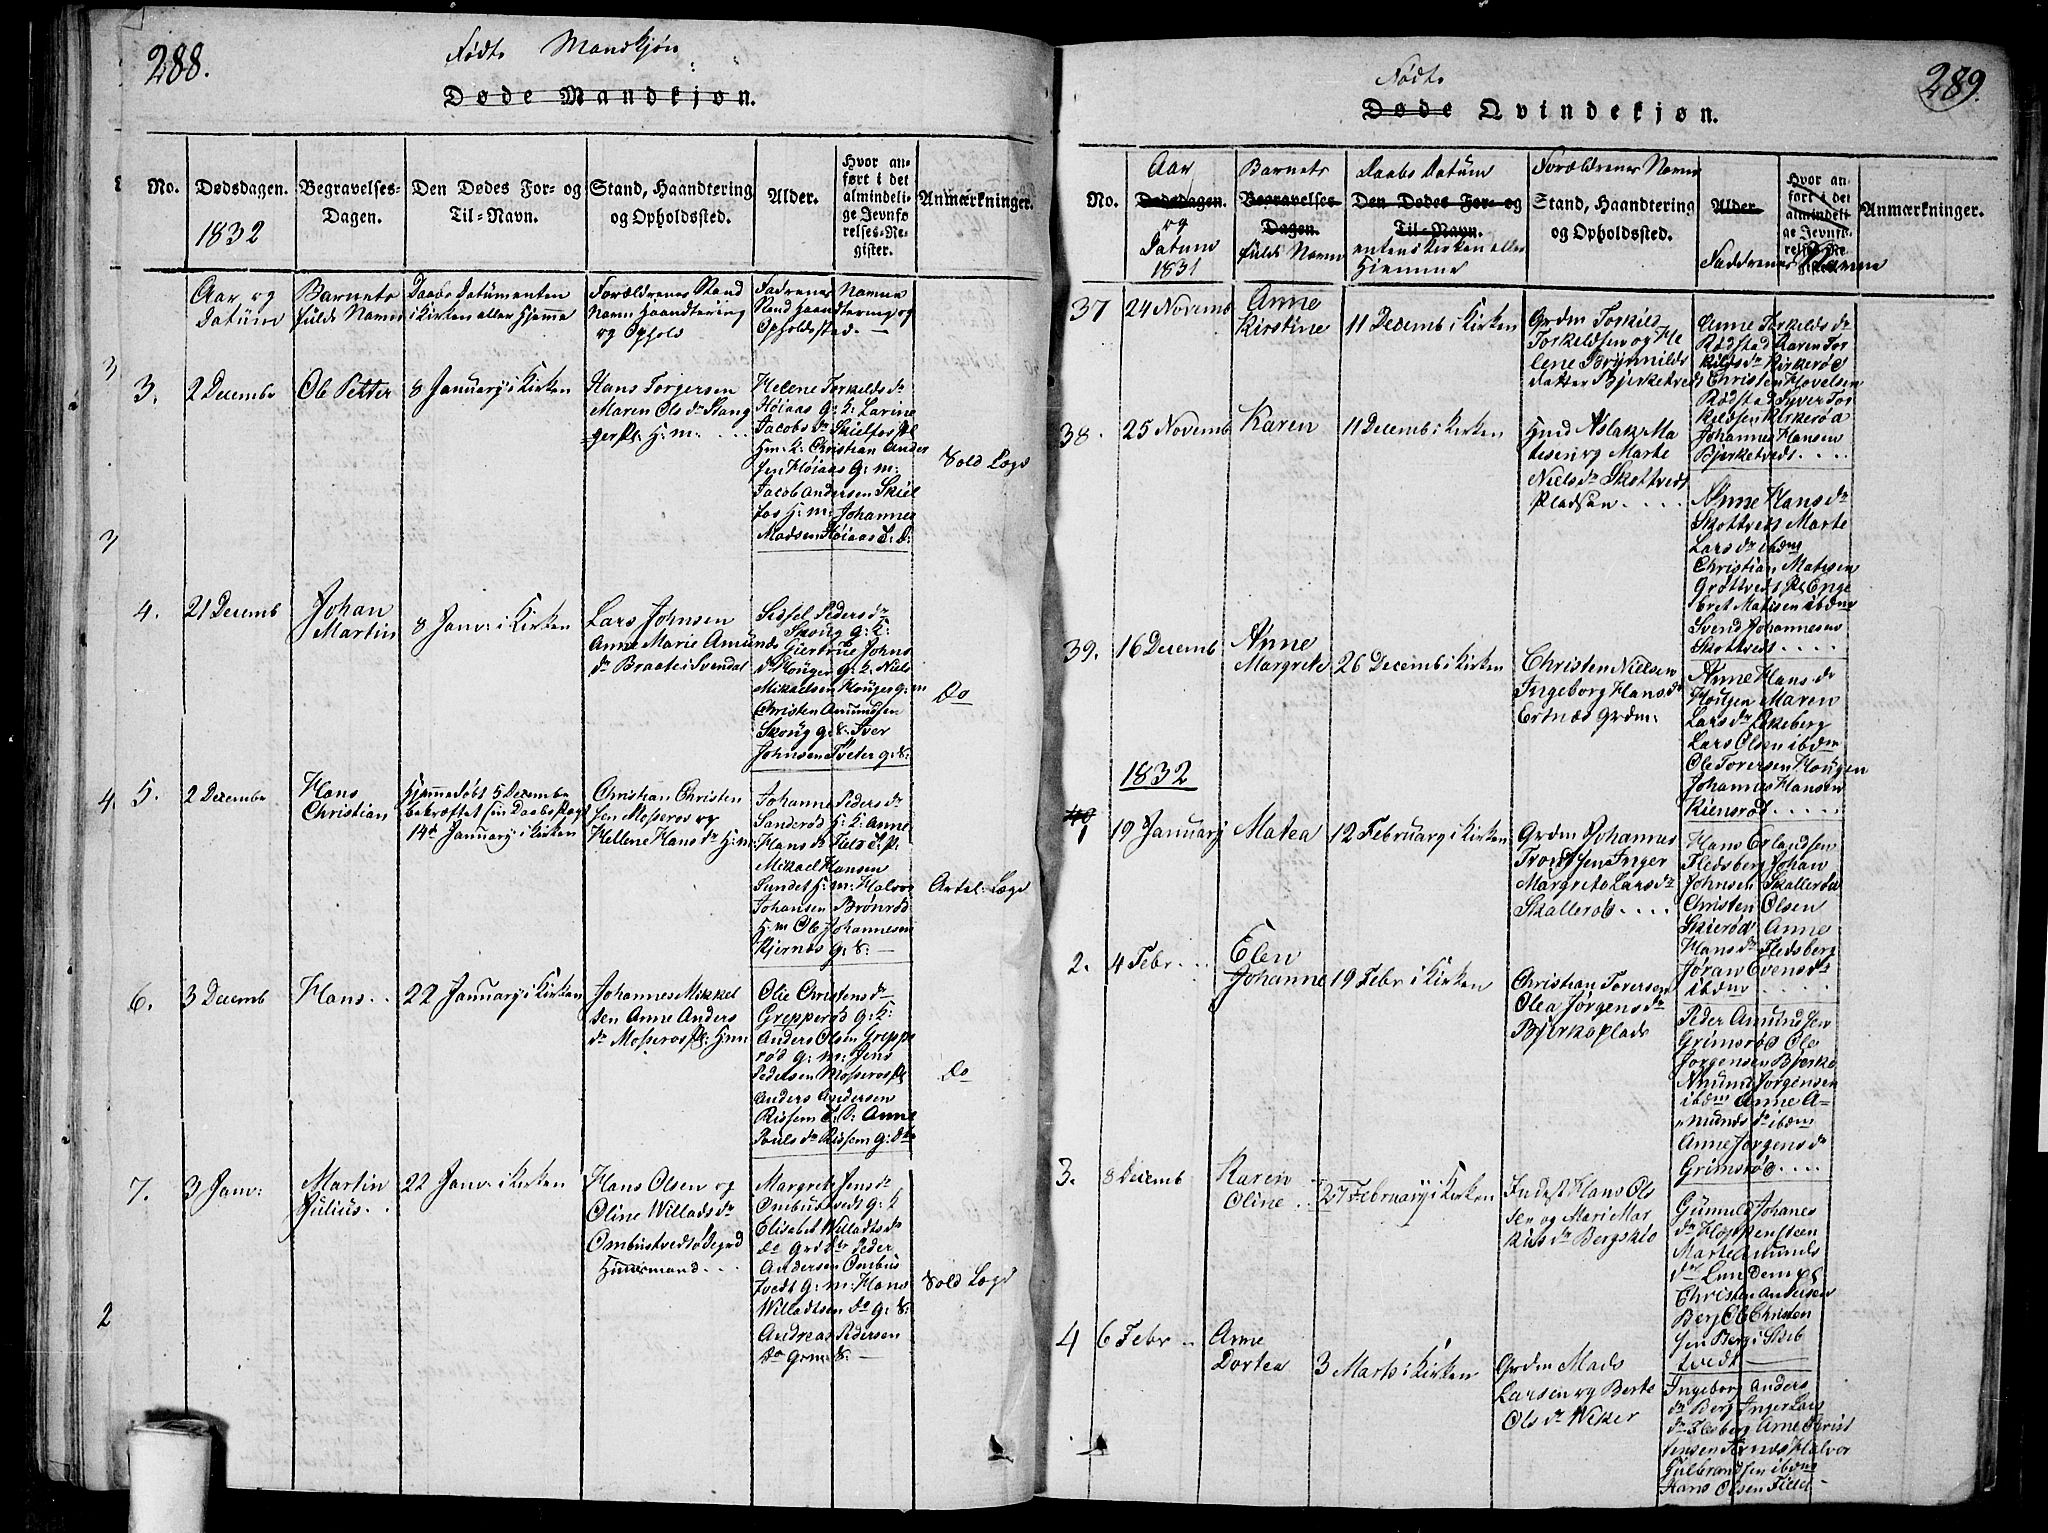 288.
Fødte Mandkjøn
Døde Mandkjøn.
No.
Dødsdagen.
1832
Begravelses-
Dagen.
Den Dødes For- og
Til-Navn.
Stand, Haandtering
og Opholdssted.
Alder.
Hvor an-
ført i det
almindeli-
ge Jevnfø
relses-Re-
gister.
Anmærkninger.
Aar og
Datum
Barnets
fulde Navn
Daabs Datum enten
i Kirken eller Hjemme
Forældrenes Stand
Navn Haandtering
og Ophold
Fadrenes Navne
Stand Haandtering og
Opholdsted
3.
2 Decembr
Ole Petter
8 January i Kirken
Hans Torgersen
Maren Ols dr Stang
ger Pl: H: m:
Helene Torkelds dr
Høiaas G: K: Larine
Jacobs dr Skielfos Pl
Hm: K: Christian Ander
sen Høiaas G: m:
Jacob Andersen Skiel
fos H: m: Johannes
Madsen Høiaas
Sold Lægd
4.
21 Decemb
Johan
Martin
8 Janv: i Kirken
Lars Johnsen
Anne Marie Amunds
dr Braate i Svendal
Sissel Peders dr
Skoug G: K:
Giertrue Johns
dr Houger G: K. Niels
Mikaelsen Houger G: m
Christen Amundsen
Skoug G: S: Iver
Johnsen Tveter G: S:
Do
5.
2 Decembr
Hans
Christian
Hjemmedøbt 5 Decembr
bekræftet sin Daabs Pagt
14de January i Kirken
Christian Christen
sen Mosseros og
Hellene Hans dr H: m:
Johanne Peders dr
Sanderød H: K: Anne
Hans dr
Mikael Hansen
Sundet H: m: Halvor
Johansen Brønrød
H: m Ole Johannesen
Kjernæs G: S:
Artel: Lægd
6.
3 Decemb
Hans
22 January i Kirken
Johannes Mikkel
sen Anne Anders
dr Mosseros Pl: H: m:
Olie Christens dr
Grepperød G: K:
Anders Olsen Greppe
rød G: m: Jens
Pedersen Mosseros Pl
Anders Andersen
Rissem Anne
Pouls dr Rissem G: dtr
Do
7.
3 Janv:
Martin
Julius
22 Janv: i Kirken
Hans Olsen og
Oline Willads dr
Ombustvedt Ødegrd
Huusmand
Margrete Jens dr
Ombustvedt G: K
Elisabet Willadts dr
do Grd dtr Peder
Andersen Ombus
tvedt G: m: Hans
Willadtsen do G: S:
Andreas Pedersen
do Grm: S:
Sold Lægd
289.
Fødte
Døde Qvindekjøn.
No.
Aar
Dødsdagen.
og
Datum
1831
Barnets
Begravelses-
Dagen.
fulde Navn
Daabs Datum
Den Dødes For- og
Til-Navn.
enten i Kirken eller
Hiemme
Forældrenes Navne
Stand, Haandtering
og Opholdssted.
Alder.
Faddrenes Navne
Hvor an-
ført i det
almindeli
ge Jevnfø-
relses-Re-
gister.
Anmærkninger.
37
24 Novemb
Anne
Kirstine
11 Decemb i Kirken
Grdm Torkild
Torkeldsen og He
lene Brynnilds
datter Bjerketvedt
Anne Torkelds dr
Rødstad Karen Tor
kilds dr Kirkerød
Christen Hovelsen
Rødstad Syver Tor
kildsen Kirkerød
Johannes Hansen
Bjerketvedt
38.
25 Novemb
Karen
11 Decemb i Kirken
Hmd Aslak Ma
tisen og Marte
Niels dr Skottvedt
Pladsen
Anne Hans dr
Skottvedt Marte
Lars dr ibdm
Christian Matisen
Grottvedt Pl Enge
bret Matisen ibdm
Svend Johannesen
Skottvedt
39.
16 Decemb
Anne
Margrete
26 Decemb i Kirken
Christen Nielsen
Ingeborg Hans dr
Ertnæs Grdm:
Anne Hans dr
Hougen Maren
Lars dr Ekeberg
Lars Olsen ibdm
Ole Toresen Hougen
Johannes Hansen
Kiensrød
1832
40
1
19 January
Matea
12 February i Kirken
Grdm Johannes
Trondsen Inger
Margrete Lars dr
Skallerød
Hans Erlandsen
Fledsberg Johan
Johnsen Skallerød
Christen Olsen
Skierød Anne
Hans dr Fledsberg
Jøran Evens dr
ibdm
2.
4 Febr
Elen
Johanne
19 Febr i Kirken
Christian Toresen
Olea Jørgens dr
Bjerkeplads
Peder Amundsen
Grimsrød Ole
Jorgensen Bjerke
Amund Jorgensen
ibdm Anne A-
munds dr ibdm
Anne Jorgens dr
Grimsrød
3.
8 Decemb
Karen
Oline
27 February i Kirken
Inderst Hans Ols
sen og Mari Mar
kus dr Bergskiø
Gunnild Johanes
dr Kloppensteen
Marte Amunds
dr Lundem Pl
Christen Andersen
Berg Ole Christen
sen Berg i Skib
tvedt
4
6 Febr
Anne
Dortea
3 Marts i Kirken
Grdm Mads
Larsen og Berte
Ols dr Wiker
Ingeborg Anders
dr Berg Inger Lars
dr Flesberg Arne Christ
ensen Ertnæs Halvor
Gulbrandsen ibdm
Hans Olsen